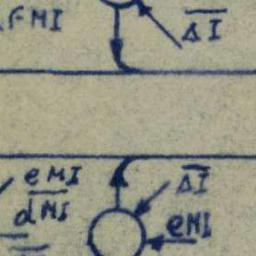 FMI
ΔI
eMI
dMI
ΔI
eMI